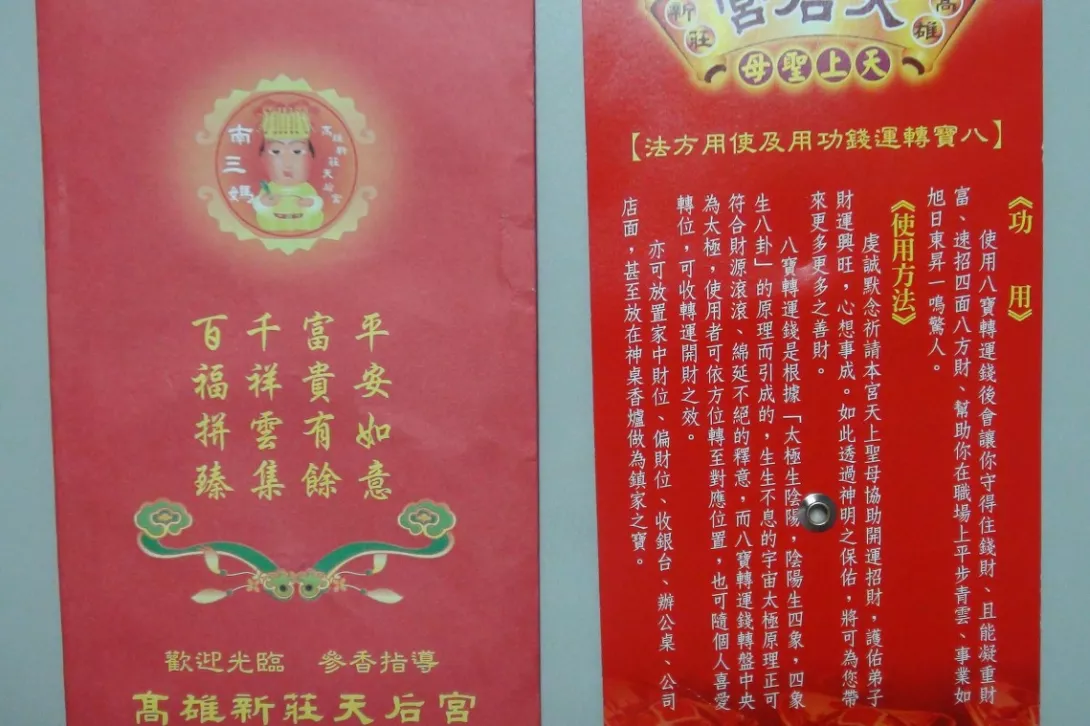 南三媽
高雄新莊天后宮
平安如意
富貴有餘
千祥雲集
百福拼臻
歡迎光臨 參香指導
高雄新莊天后宮
高雄
天后宮
新莊
天上聖母
【八寶轉運錢功用及使用方法】
《功 用》
使用八寶轉運錢後會讓你守得住錢財、且能凝重財
富、速招四面八方財、幫助你在職場上平步青雲、事業如
旭日東昇一鳴驚人。
《使用方法》
虔誠默念祈請本宮天上聖母協助開運招財，護佑弟子
財運興旺，心想事成。如此透過神明之保佑，將可為您帶
來更多更多之善財。
八寶轉運錢是根據「太極生陰陽，陰陽生四象，四象
生八卦」的原理而引成的，生生不息的宇宙太極原理正可
符合財源滾滾、綿延不絕的釋意，而八寶轉運錢轉盤中央
為太極，使用者可依方位轉至對應位置，也可隨個人喜愛
轉位，可收轉運開財之效。
亦可放置家中財位、偏財位、收銀台、辦公桌、公司
店面，甚至放在神桌香爐做為鎮家之寶。